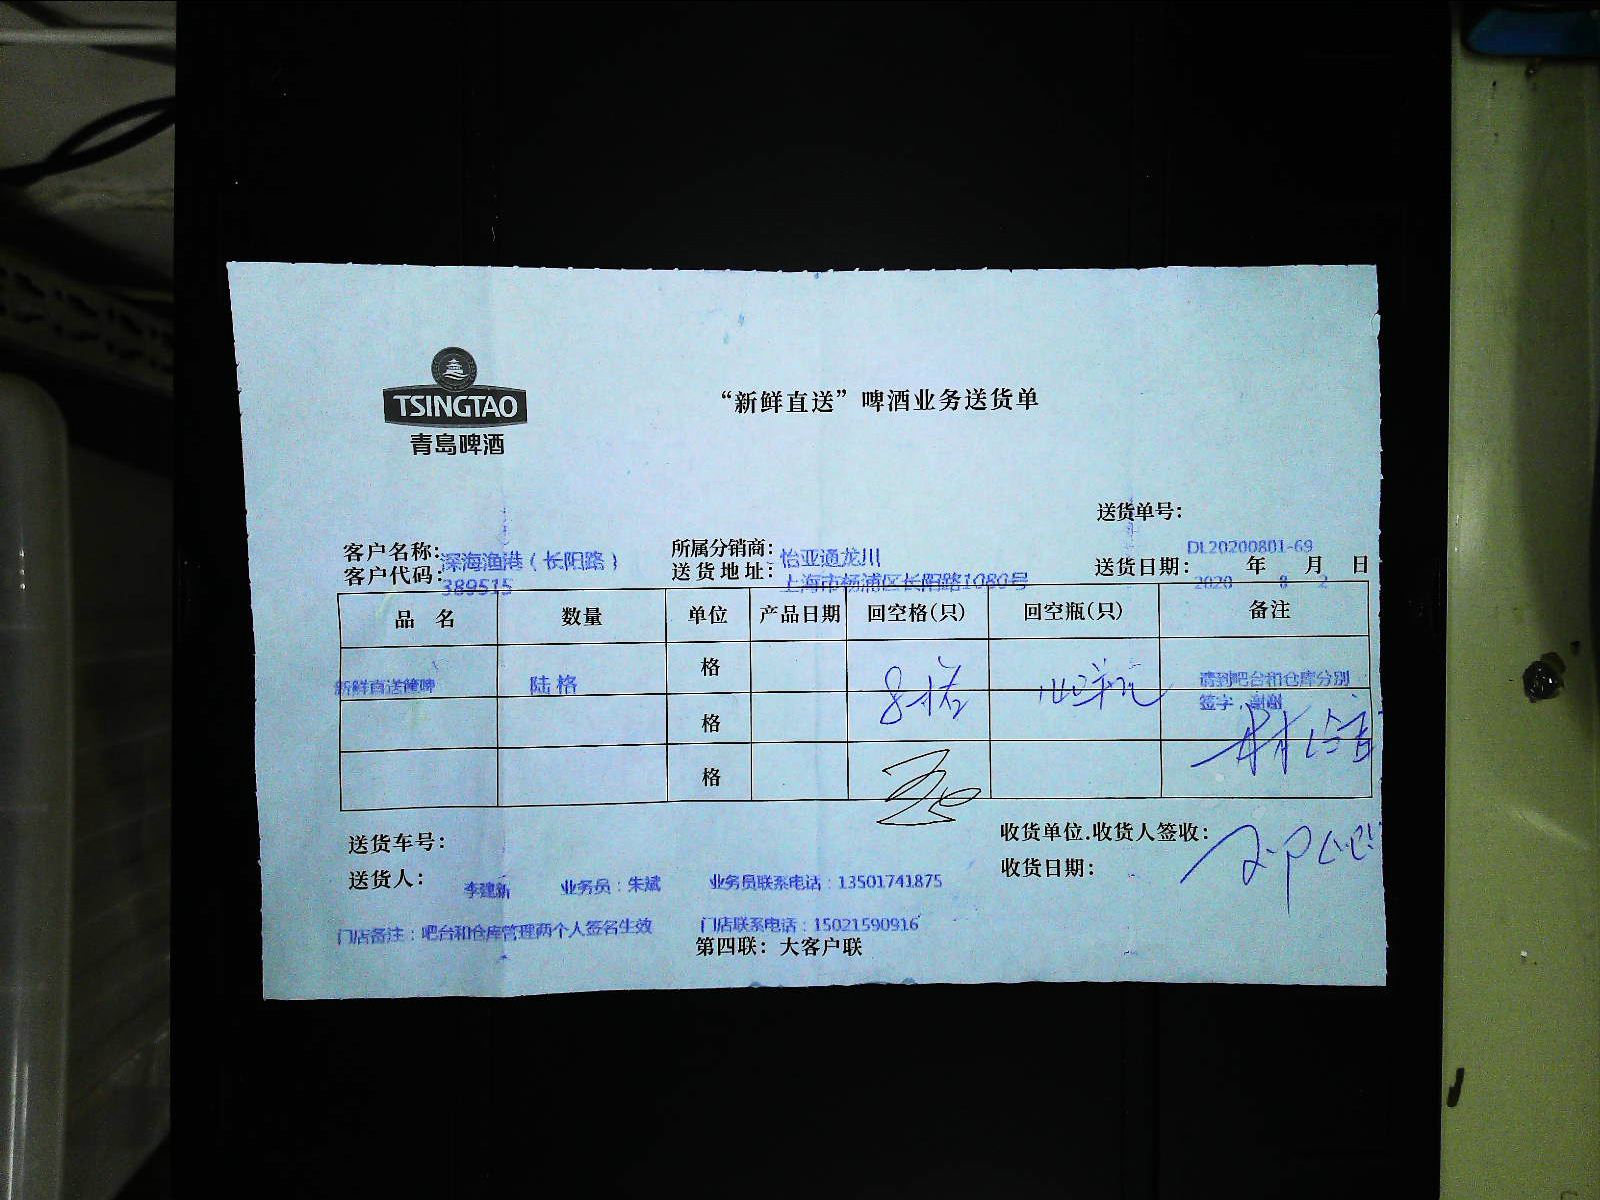 TSINGTAO
青島啤酒
“新鲜直送”啤酒业务送货单
送货单号：
DL20200801-69
客户名称：深海渔港（长阳路） 所属分销商：怡亚通龙川
客户代码：389515 送货地址：上海市杨浦区长阳路1080号 送货日期：2020年8月2日
品 名 数量 单位 产品日期 回空格(只) 回空瓶(只) 备注
新鲜直送 陆格 格 8格 请到吧台和仓库分别
签字，谢谢
格
格
送货车号： 收货单位.收货人签收：
送货人：李建新 业务员：朱斌 业务员联系电话：13501741875 收货日期：
门店备注：吧台和仓库管理两个人签名生效 门店联系电话：15021590916
第四联：大客户联